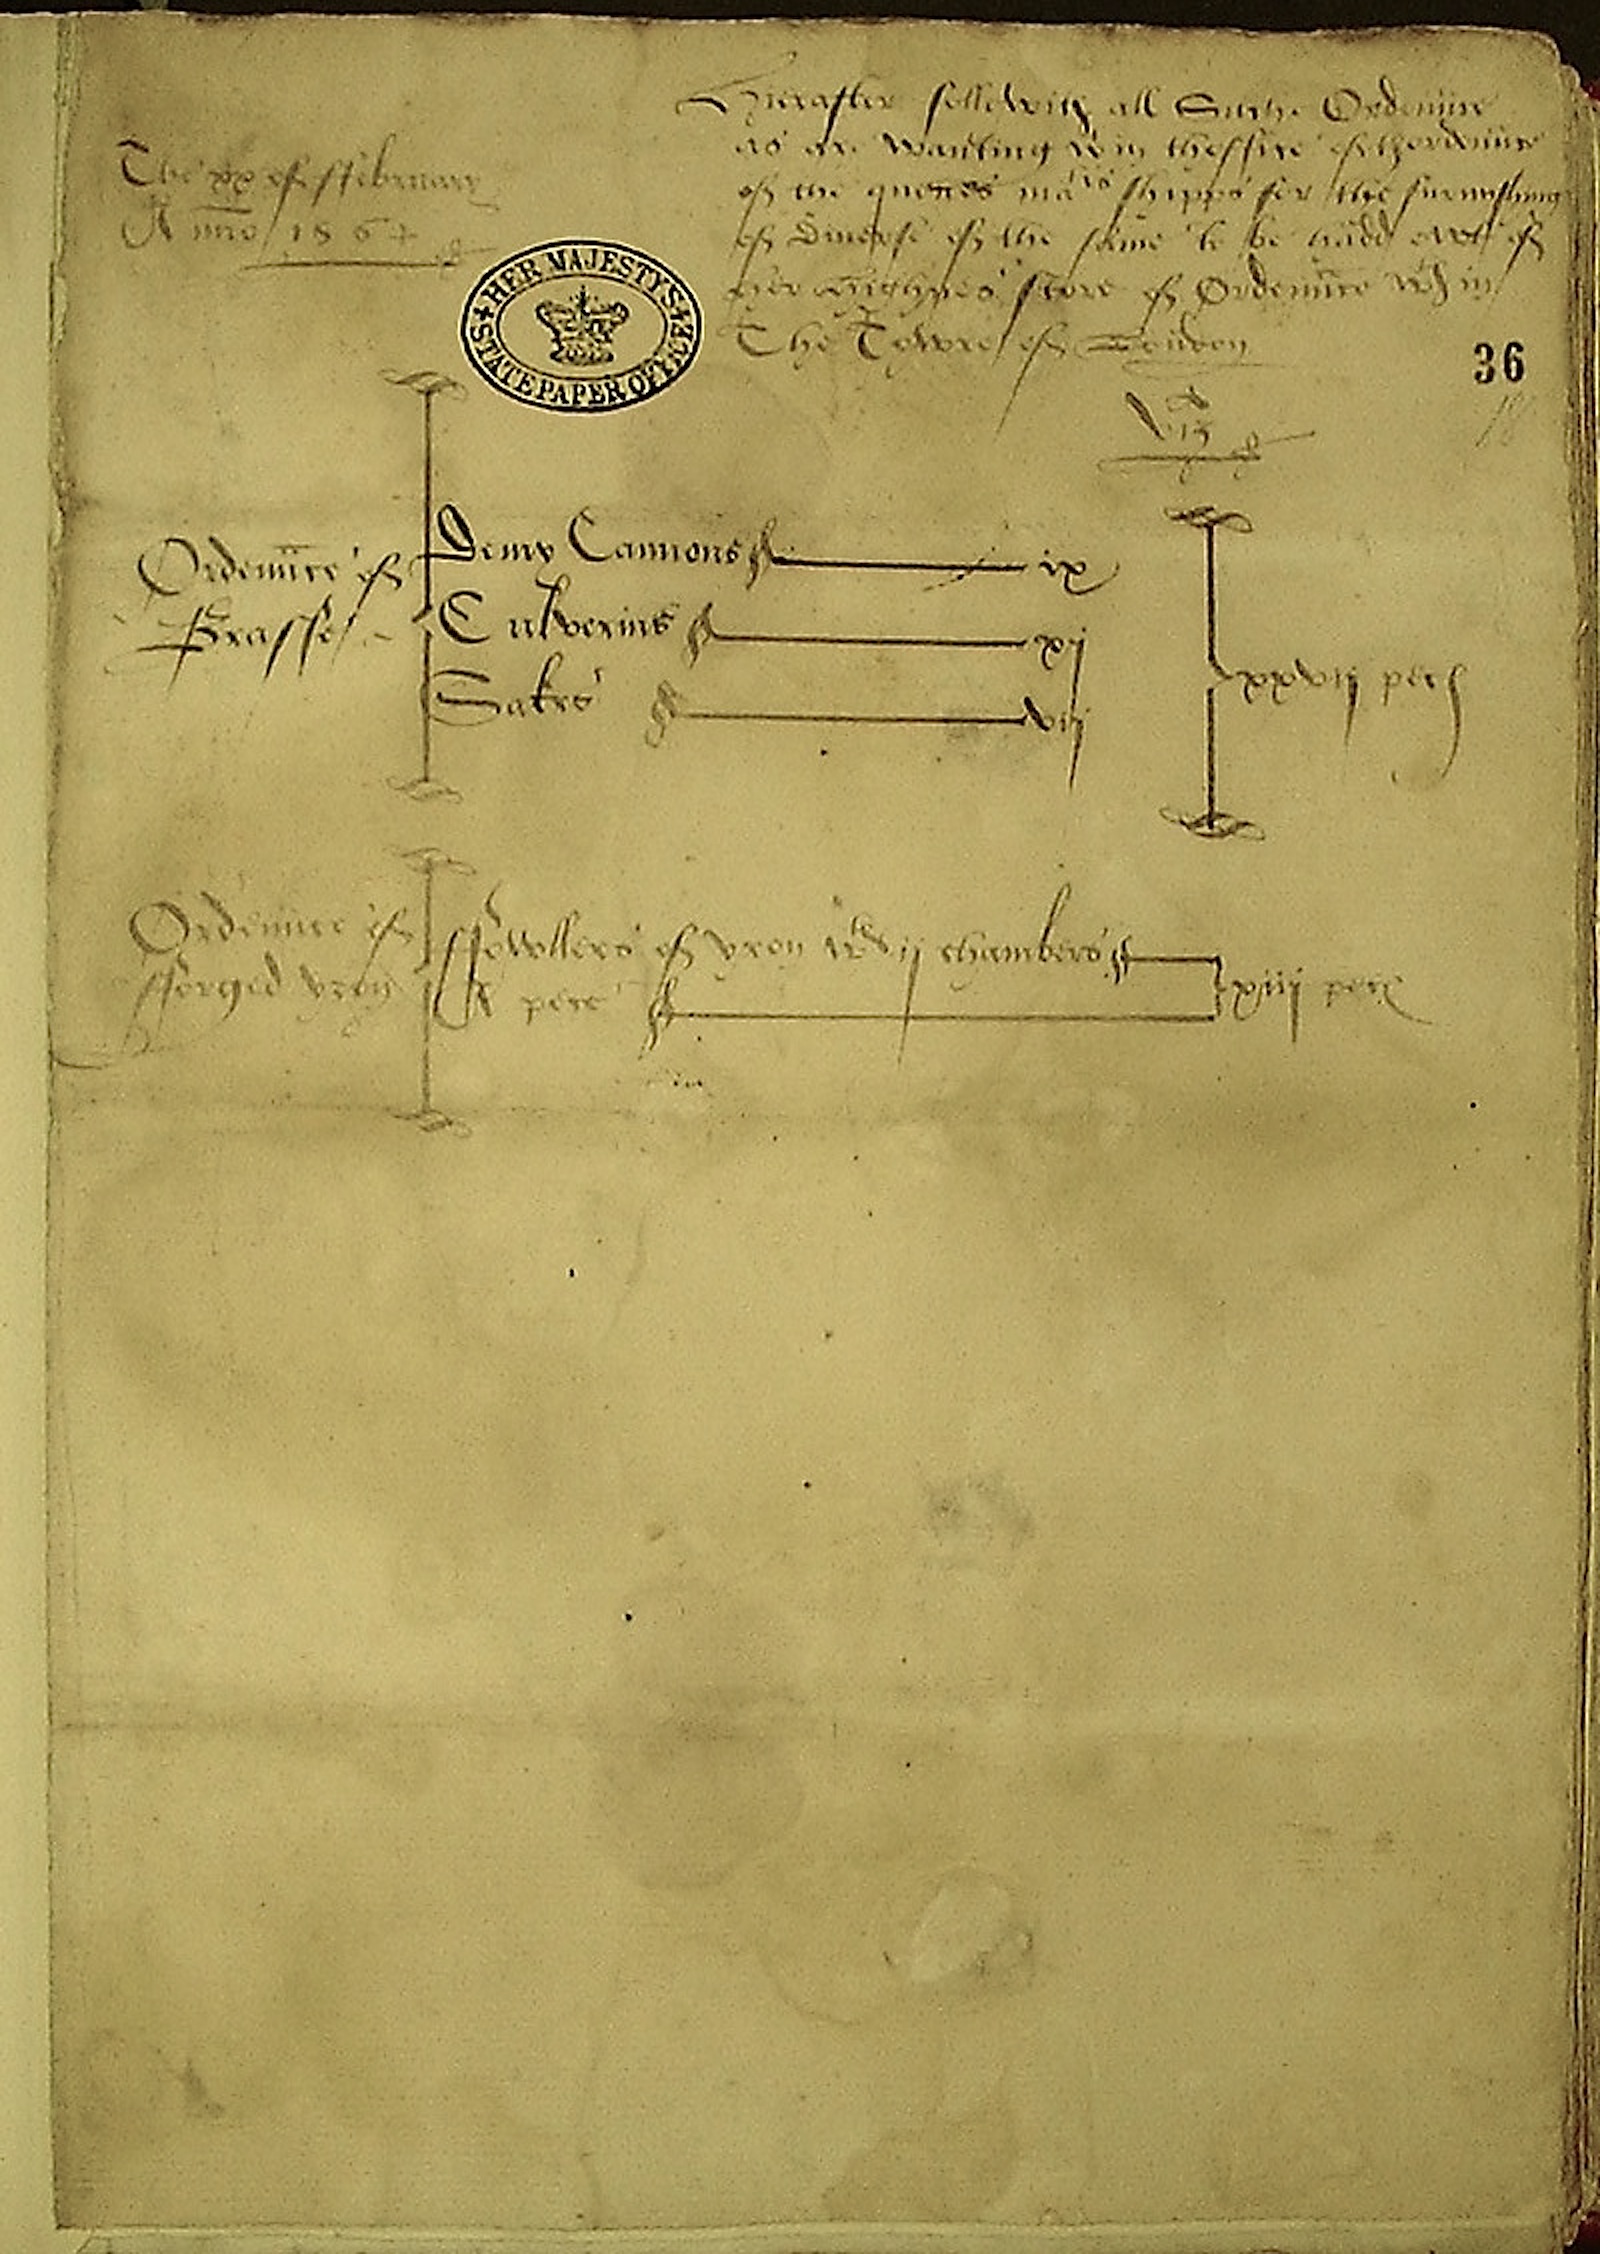 The xx of ffebruary
Anno 1564
Hereafter followith all Suche Ordennce
as are wanting wth in thoffice of thordennce
of the quenes mats shipps for the furnishing
of Diverse of the same to be hadd owt of
her highnes store of Ordennce wth in
The Towre of London
HER MAJESTYS
STATE PAPER OFFICE
36
viz
Ordennce of
Brasse
Demy Cannons ix
Culverins xij
Sakrs vij
xxviij peces
Ordennce of
fforged yron
ffowllers of yron wth ij chambers
A pece
xiiij peces